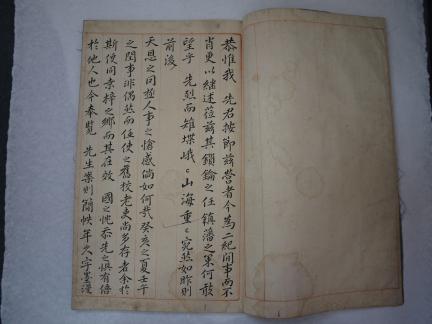 恭惟我 先君按節玆營者今為二紀間事而不
肖更以繼述莅玆其鎖鑰之任鎮藩之策何敢
望乎 先烈而雉堞峨〻山海重〻宛然如昨則
前後
天恩之同極人事之愴感倘如何哉癸亥之夏壬午
之閏事非偶然而任使之舊校老吏尚多存者余於
斯便同桑梓之鄉而其在效 國之忱忝先之懼有倍
於他人也今奉覽 先生案則簡帙年久字墨漫